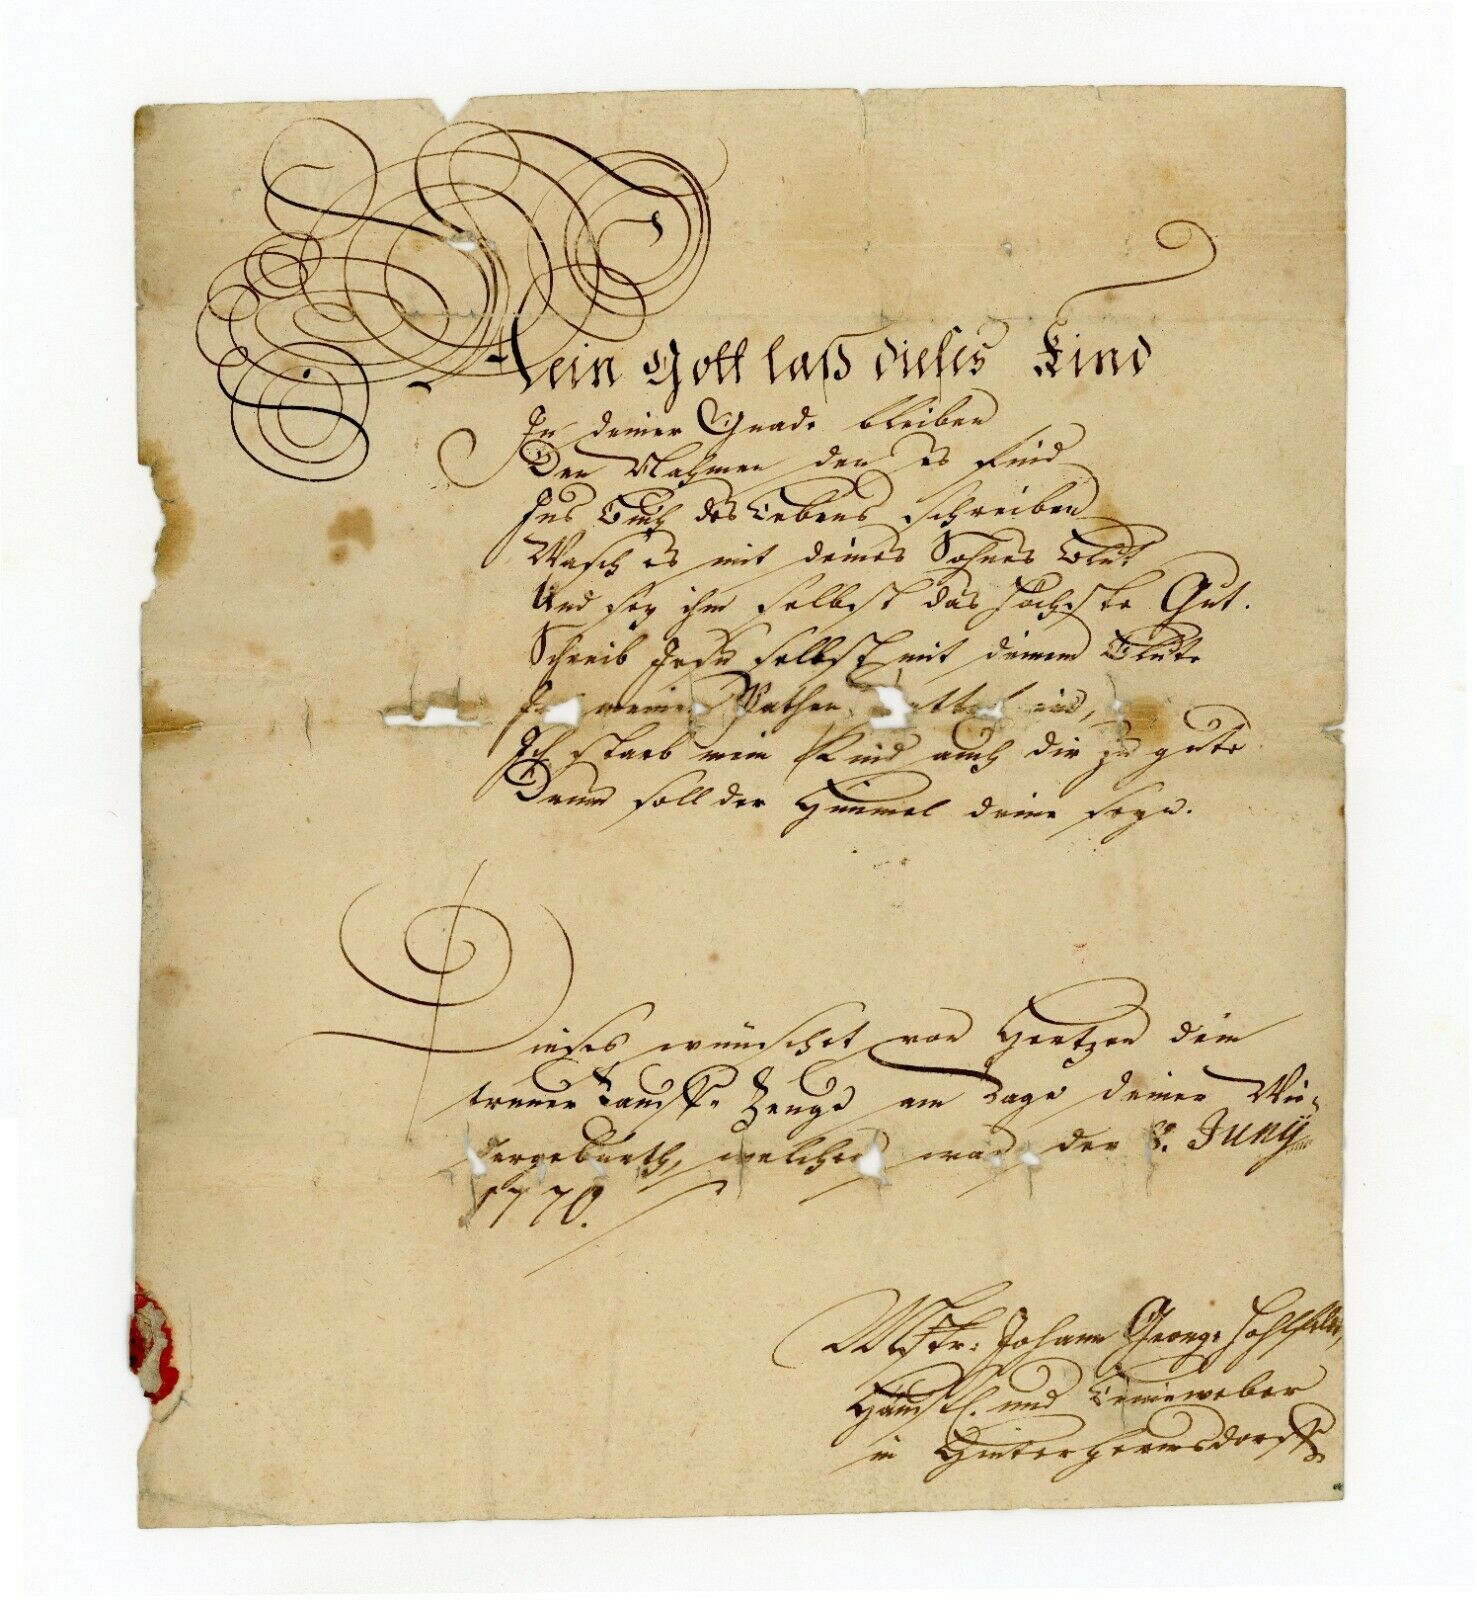 Mein Gott laß dieses Kind
In deiner Gnade bleiben
Den Nahmen den es find
Ins Buch des Lebens schreiben
Wasch es mit deines Sohnes Blut
Und sey ihm selbst das höchste Gut.
Schreib Jesu selbst mit deinem Blute
meinem Pathen ein,
Ich starb mein Kind auch dir zu gute
Drum soll der Himmel deine seyn.
Dieses wünschet von Hertzen dein
treuer Tauff Zeuge am Tage deiner Wie-
dergeburth, welcher war der Juny
1770.
Mstr: Johann George Hohlfeldt,
Häußl. und Leineweber
in Hinterhermsdorff